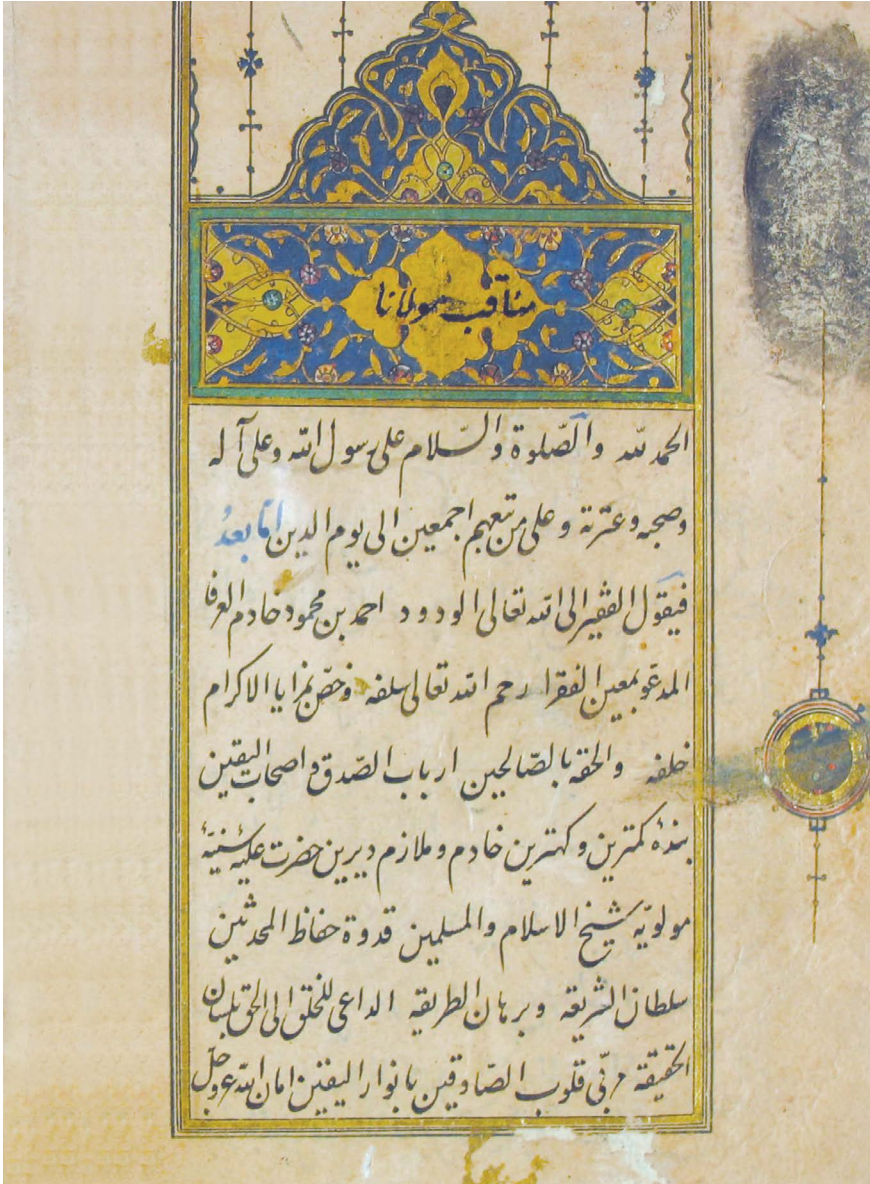 مناقب مولانا
الحمد لله والصّلوة والسّلام على رسول الله وعلى آله
وصحبه وعترته وعلى من تبعهم اجمعين الى يوم الدين امّا بعدُ
فيقول الفقير الى الله تعالى الودود احمد بن محمود خادم العرفا
المدعوّ بمعين الفقرا رحم الله تعالى سلفه وخصّ بمزايا الاكرام
خلفه والحقه بالصّالحين ارباب الصّدق و اصحاب اليقين
بندهٔ کمترین و کهترین خادم و ملازم دیرین حضرت علیّهٔ سنیّهٔ
مولویّه شیخ الاسلام والمسلمین قدوة حفاظ المحدثین
سلطان الشریعه و برهان الطریقه الداعی للخلق الی الحق بلسان
الحقیقة مربّی قلوب الصّادقین بانوار الیقین امان الله عزوجلّ